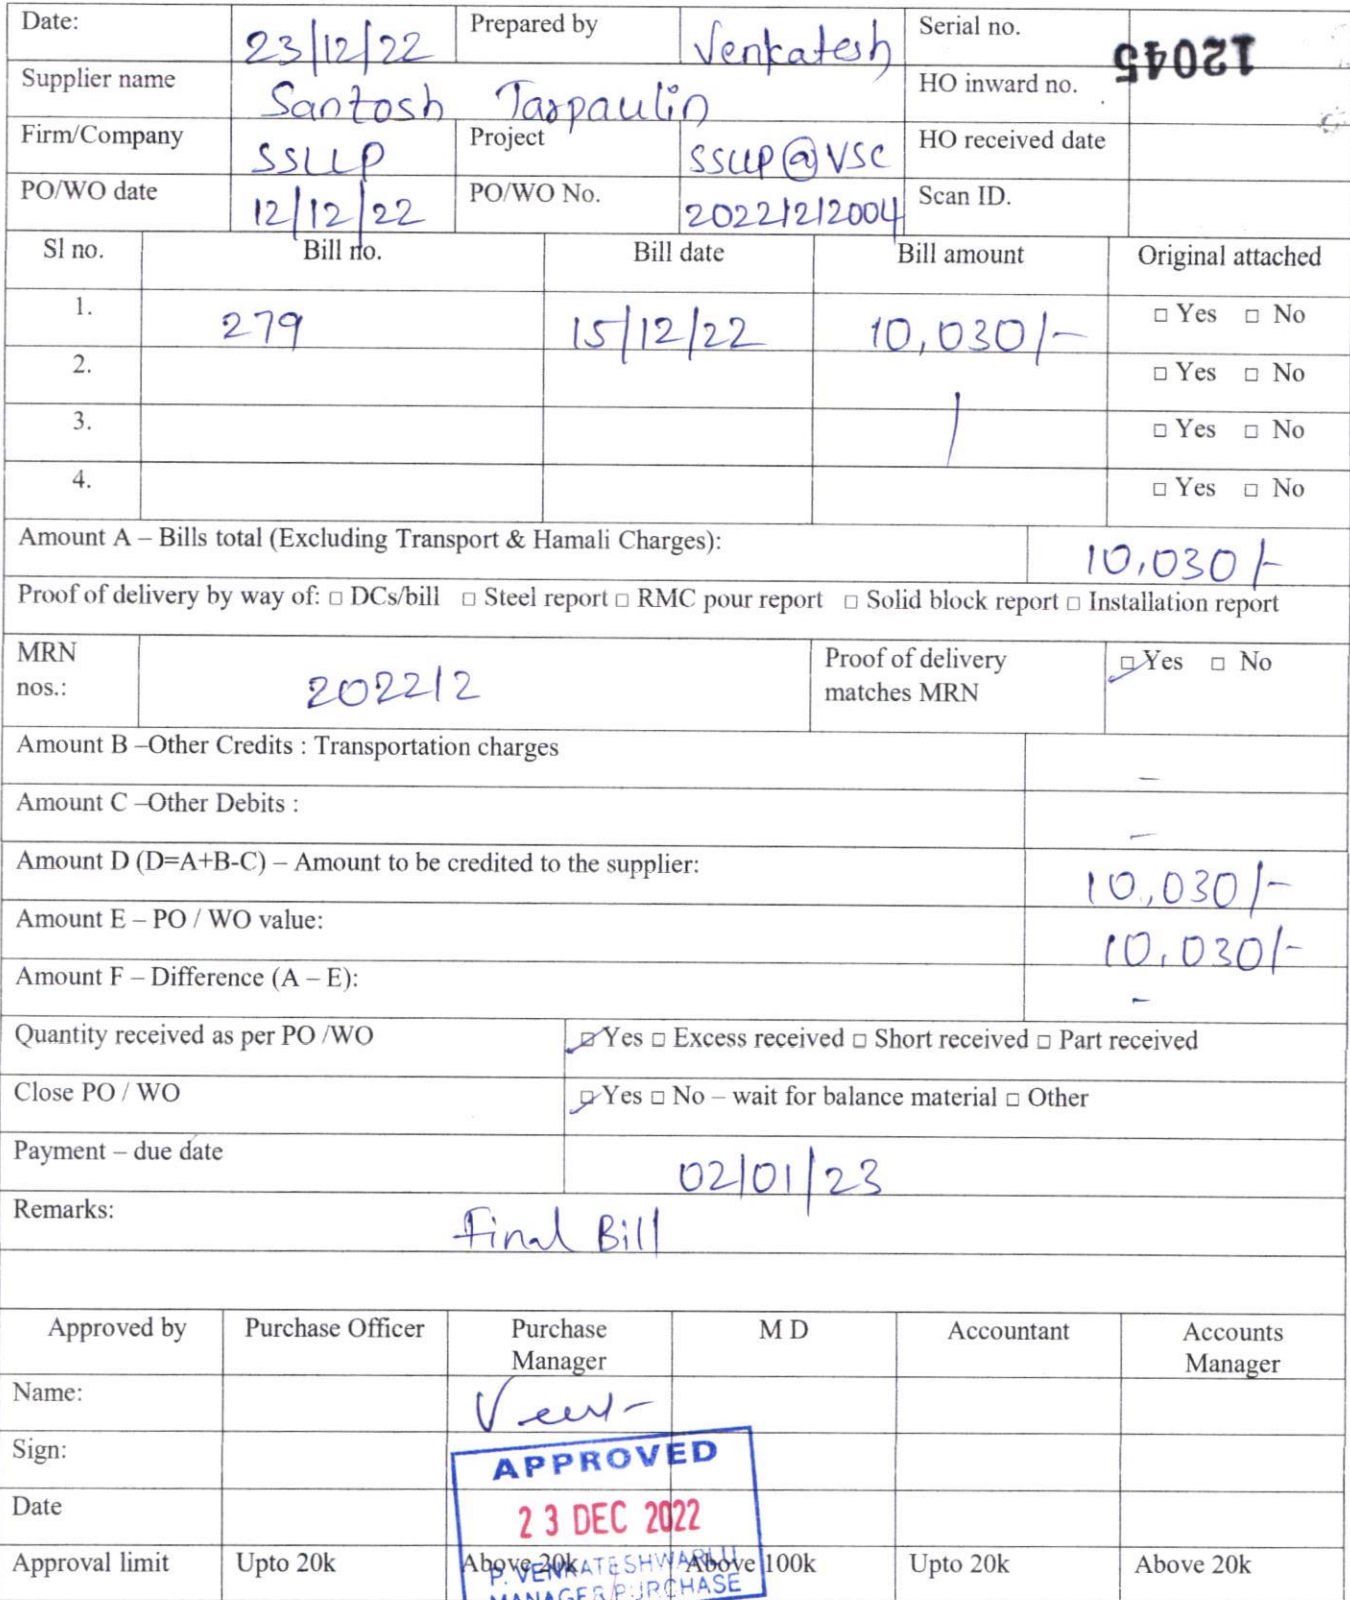 Date: 23/12/22 Prepared by Venkatesh Serial no. 12045
Supplier name Santosh Tarpaulin HO inward no.
Firm/Company SSLLP Project SSLLP@VSC HO received date
PO/WO date 12/12/22 PO/WO No. 20221212004 Scan ID.
Sl no. Bill no. Bill date Bill amount Original attached
1. 279 15/12/22 10,030/- □ Yes □ No
2. □ Yes □ No
3. □ Yes □ No
4. □ Yes □ No
Amount A – Bills total (Excluding Transport & Hamali Charges): 10,030/-
Proof of delivery by way of: □ DCs/bill □ Steel report □ RMC pour report □ Solid block report □ Installation report
MRN nos.: 202212 Proof of delivery matches MRN ☑ Yes □ No
Amount B –Other Credits : Transportation charges –
Amount C –Other Debits : –
Amount D (D=A+B-C) – Amount to be credited to the supplier: 10,030/-
Amount E – PO / WO value: 10,030/-
Amount F – Difference (A – E): –
Quantity received as per PO /WO ☑ Yes □ Excess received □ Short received □ Part received
Close PO / WO ☑ Yes □ No – wait for balance material □ Other
Payment – due date 02/01/23
Remarks: Final Bill
Approved by Purchase Officer Purchase Manager M D Accountant Accounts Manager
Name:
Sign:
APPROVED
Date 23 DEC 2022
Approval limit Upto 20k Above 20k Above 100k Upto 20k Above 20k
P. VENKATESHWARLU
MANAGER PURCHASE